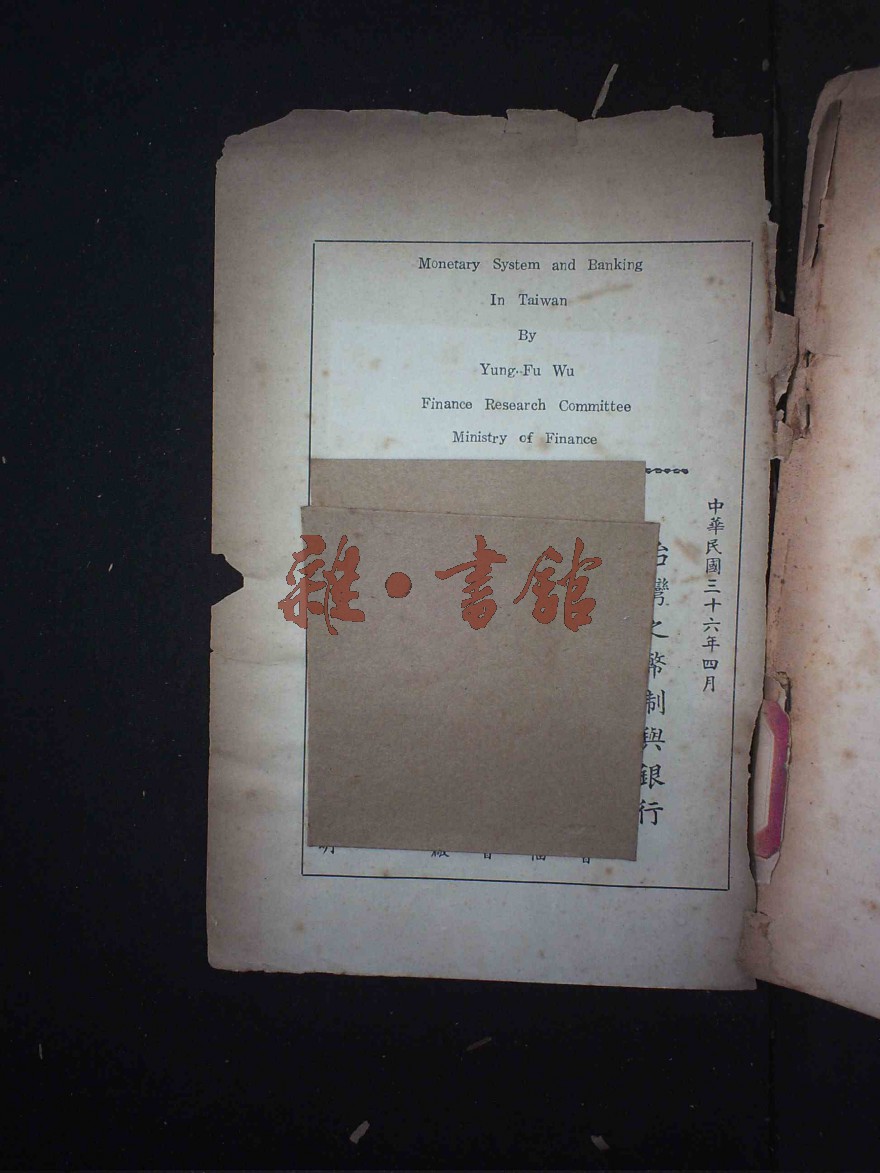 Monetary System and Banking
In Taiwan
By
Yung-Fu Wu
Finance Research Committee
Ministry of Finance
中華民國三十六年四月
台灣之幣制與銀行
雜·書館